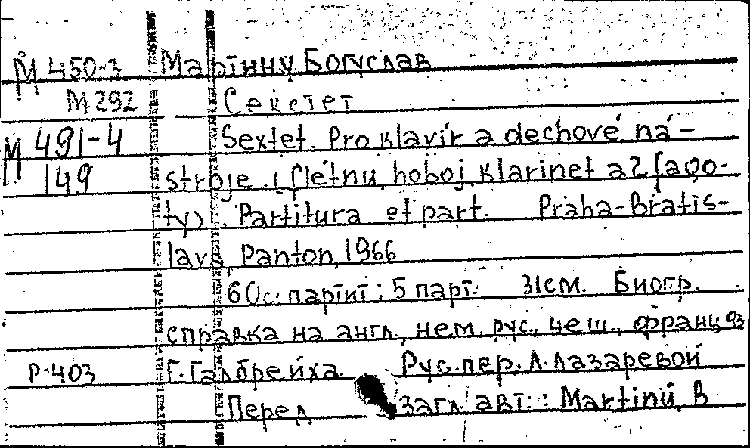 М 450-3 Мартину Богуслав
М 292 Секстет
М 491-4 Sextet. Pro klavír a dechové ná-
149 stroje (flétnu, hoboj, klarinet a 2 fago-
ty). Partitura et part. Praha-Bratis-
lava, Panton, 1966
60с. партит; 5 парт. 31см. Биогр.
справка на англ, нем, рус, чеш, франц яз
Р-403 Г. Галбрейха. Рус. пер. Л. Лазаревой
Перед загл. авт.: Martinů, B